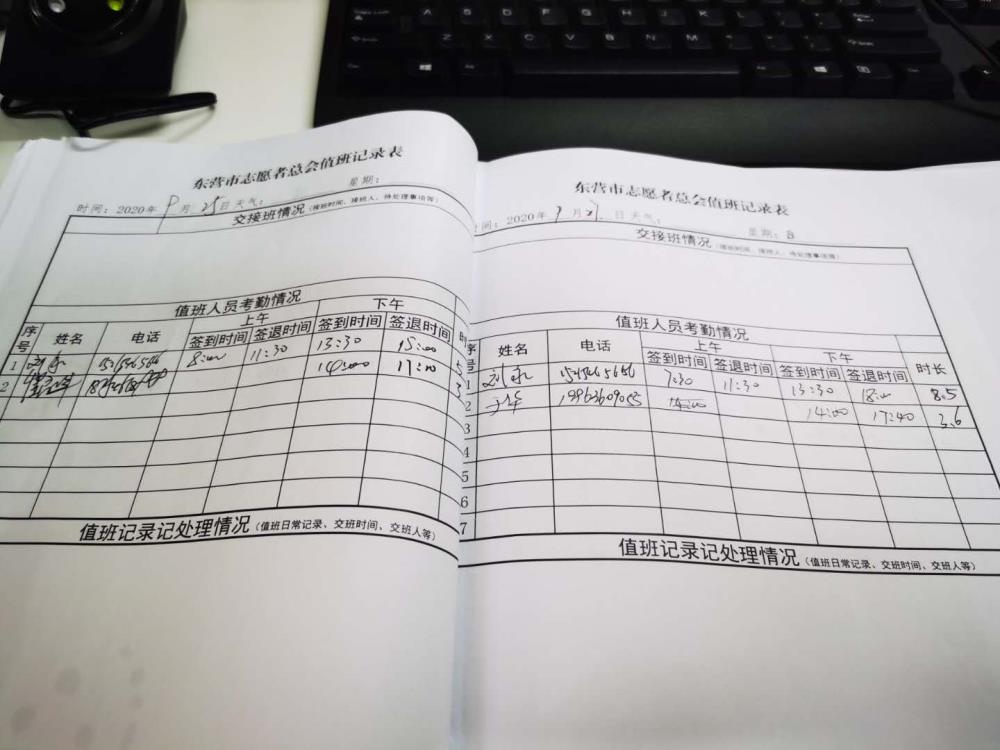 东营市志愿者总会值班记录表
时间：2020年 9月25日天气： 星期：
交接班情况（接班时间、接班人、待处理事项等）
值班人员考勤情况
序号 姓名 电话 上午 下午 时
签到时间 签退时间 签到时间 签退时间
1 刘 8:00 11:30 13:30 18:00 5
2 14:00 17:00 3
值班记录记处理情况（值班日常记录、交班时间、交班人等）
东营市志愿者总会值班记录表
时间：2020年 9月 日天气： 星期：
交接班情况（接班时间、接班人、待处理事项等）
值班人员考勤情况
序号 姓名 电话 上午 下午 时长
签到时间 签退时间 签到时间 签退时间
1 刘 7:30 11:30 13:30 18:00 8.5
2 于华 14:00 14:00 17:40 3.6
3
4
5
6
7
值班记录记处理情况（值班日常记录、交班时间、交班人等）